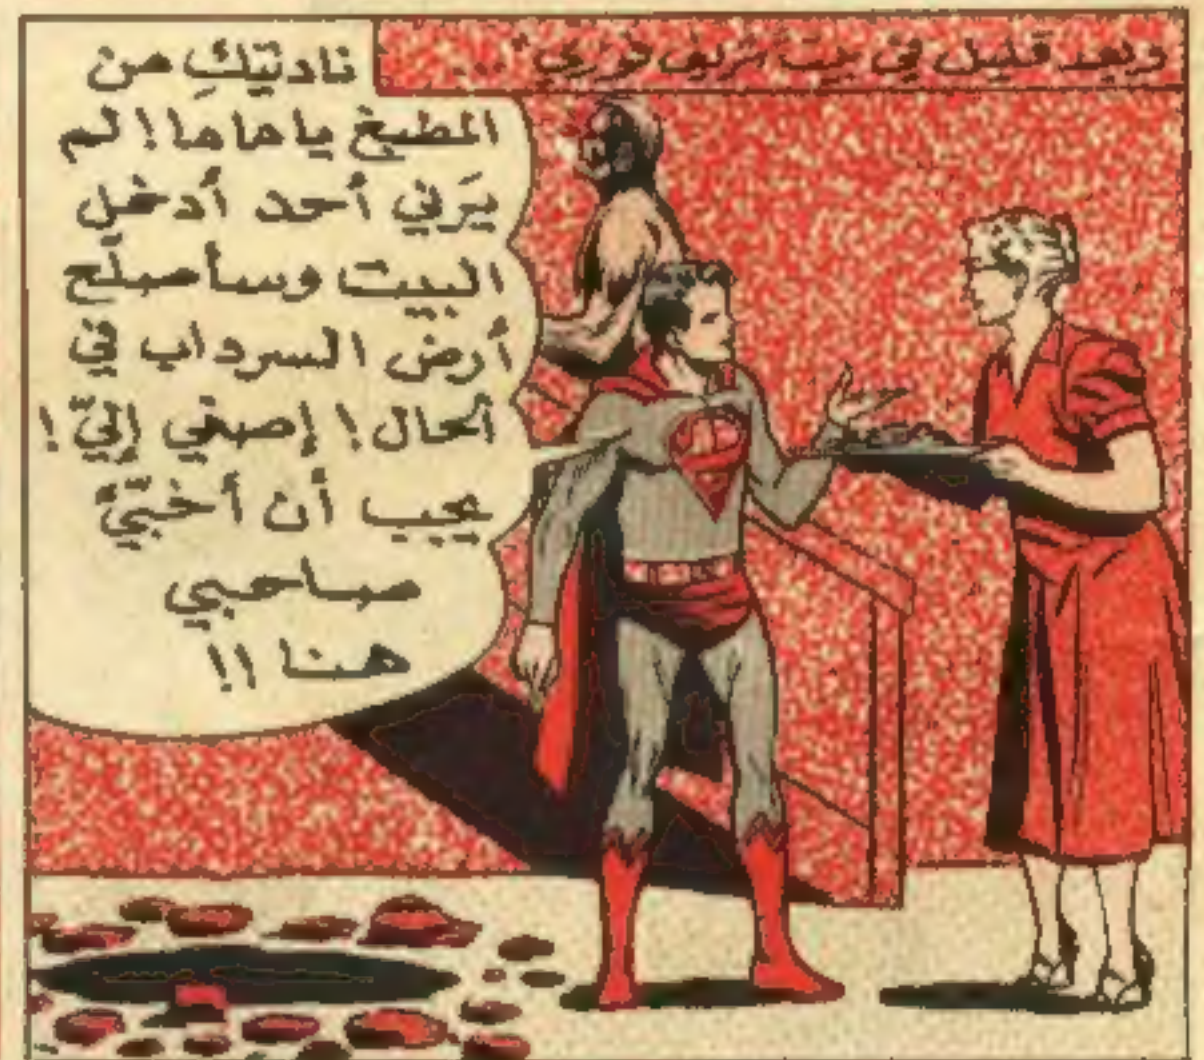 وبعد قليل في بيت نزيلي فوزي ...
ناديتكِ من
المطبخ ياماما! لم
يَرَني أحد أدخل
البيت وسأصلّح
أرض السرداب في
الحال! إصغي إليّ!
يجب أن أخبّئ
صاحبي
هنا!!